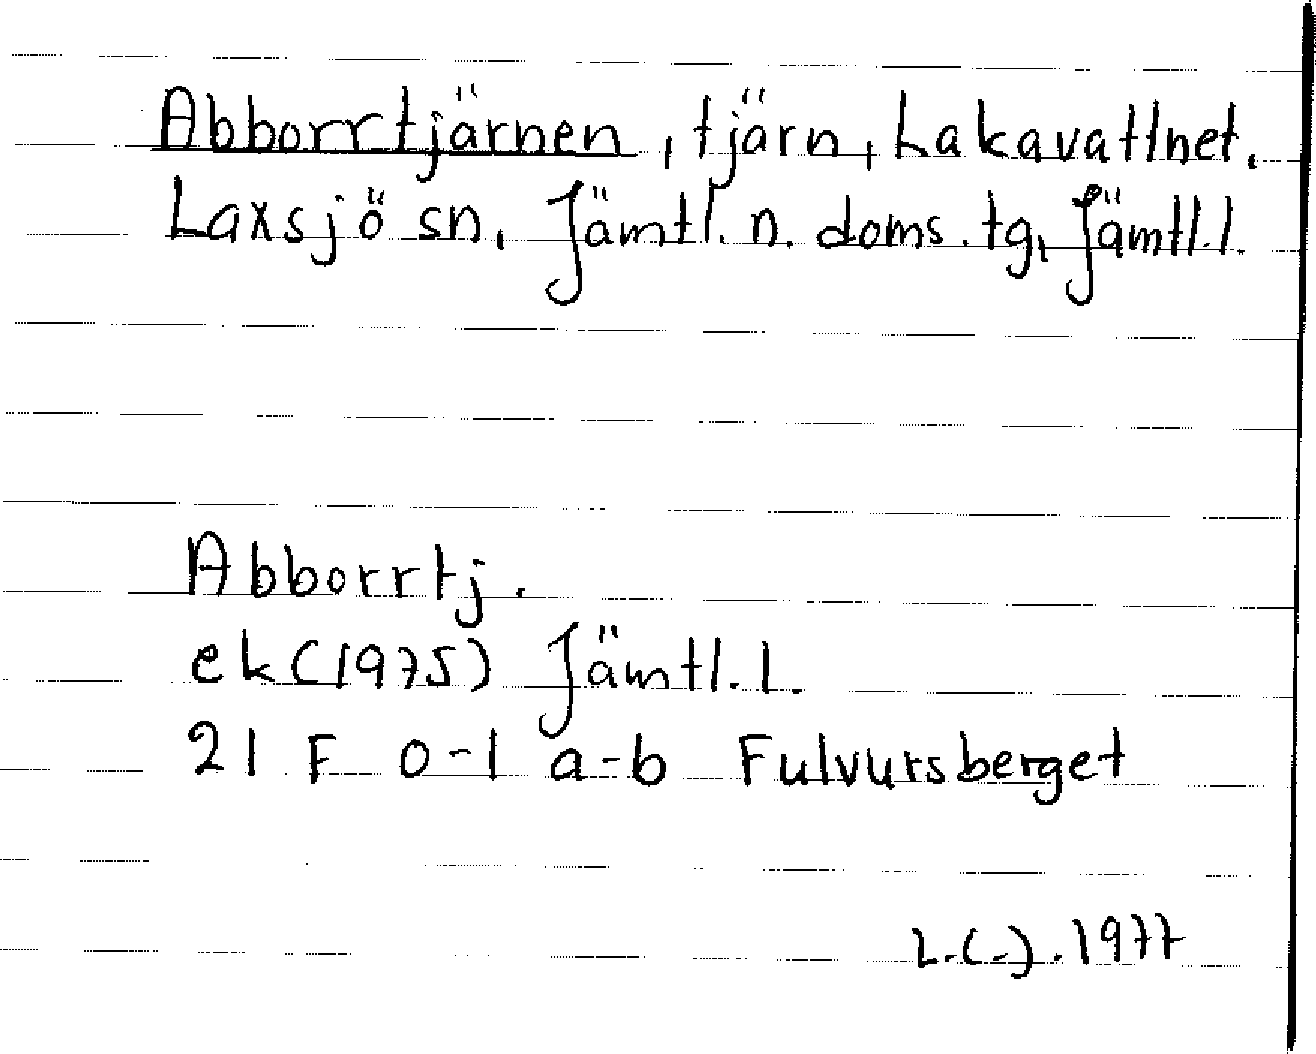 Abborrtjärnen, tjärn, Lakavattnet,
Laxsjö sn, Jämtl. n. doms. tg, Jämtl.l.
Abborrtj.
ek (1975) Jämtl. l.
21 F 0-1 a-b Fulvursberget
1977